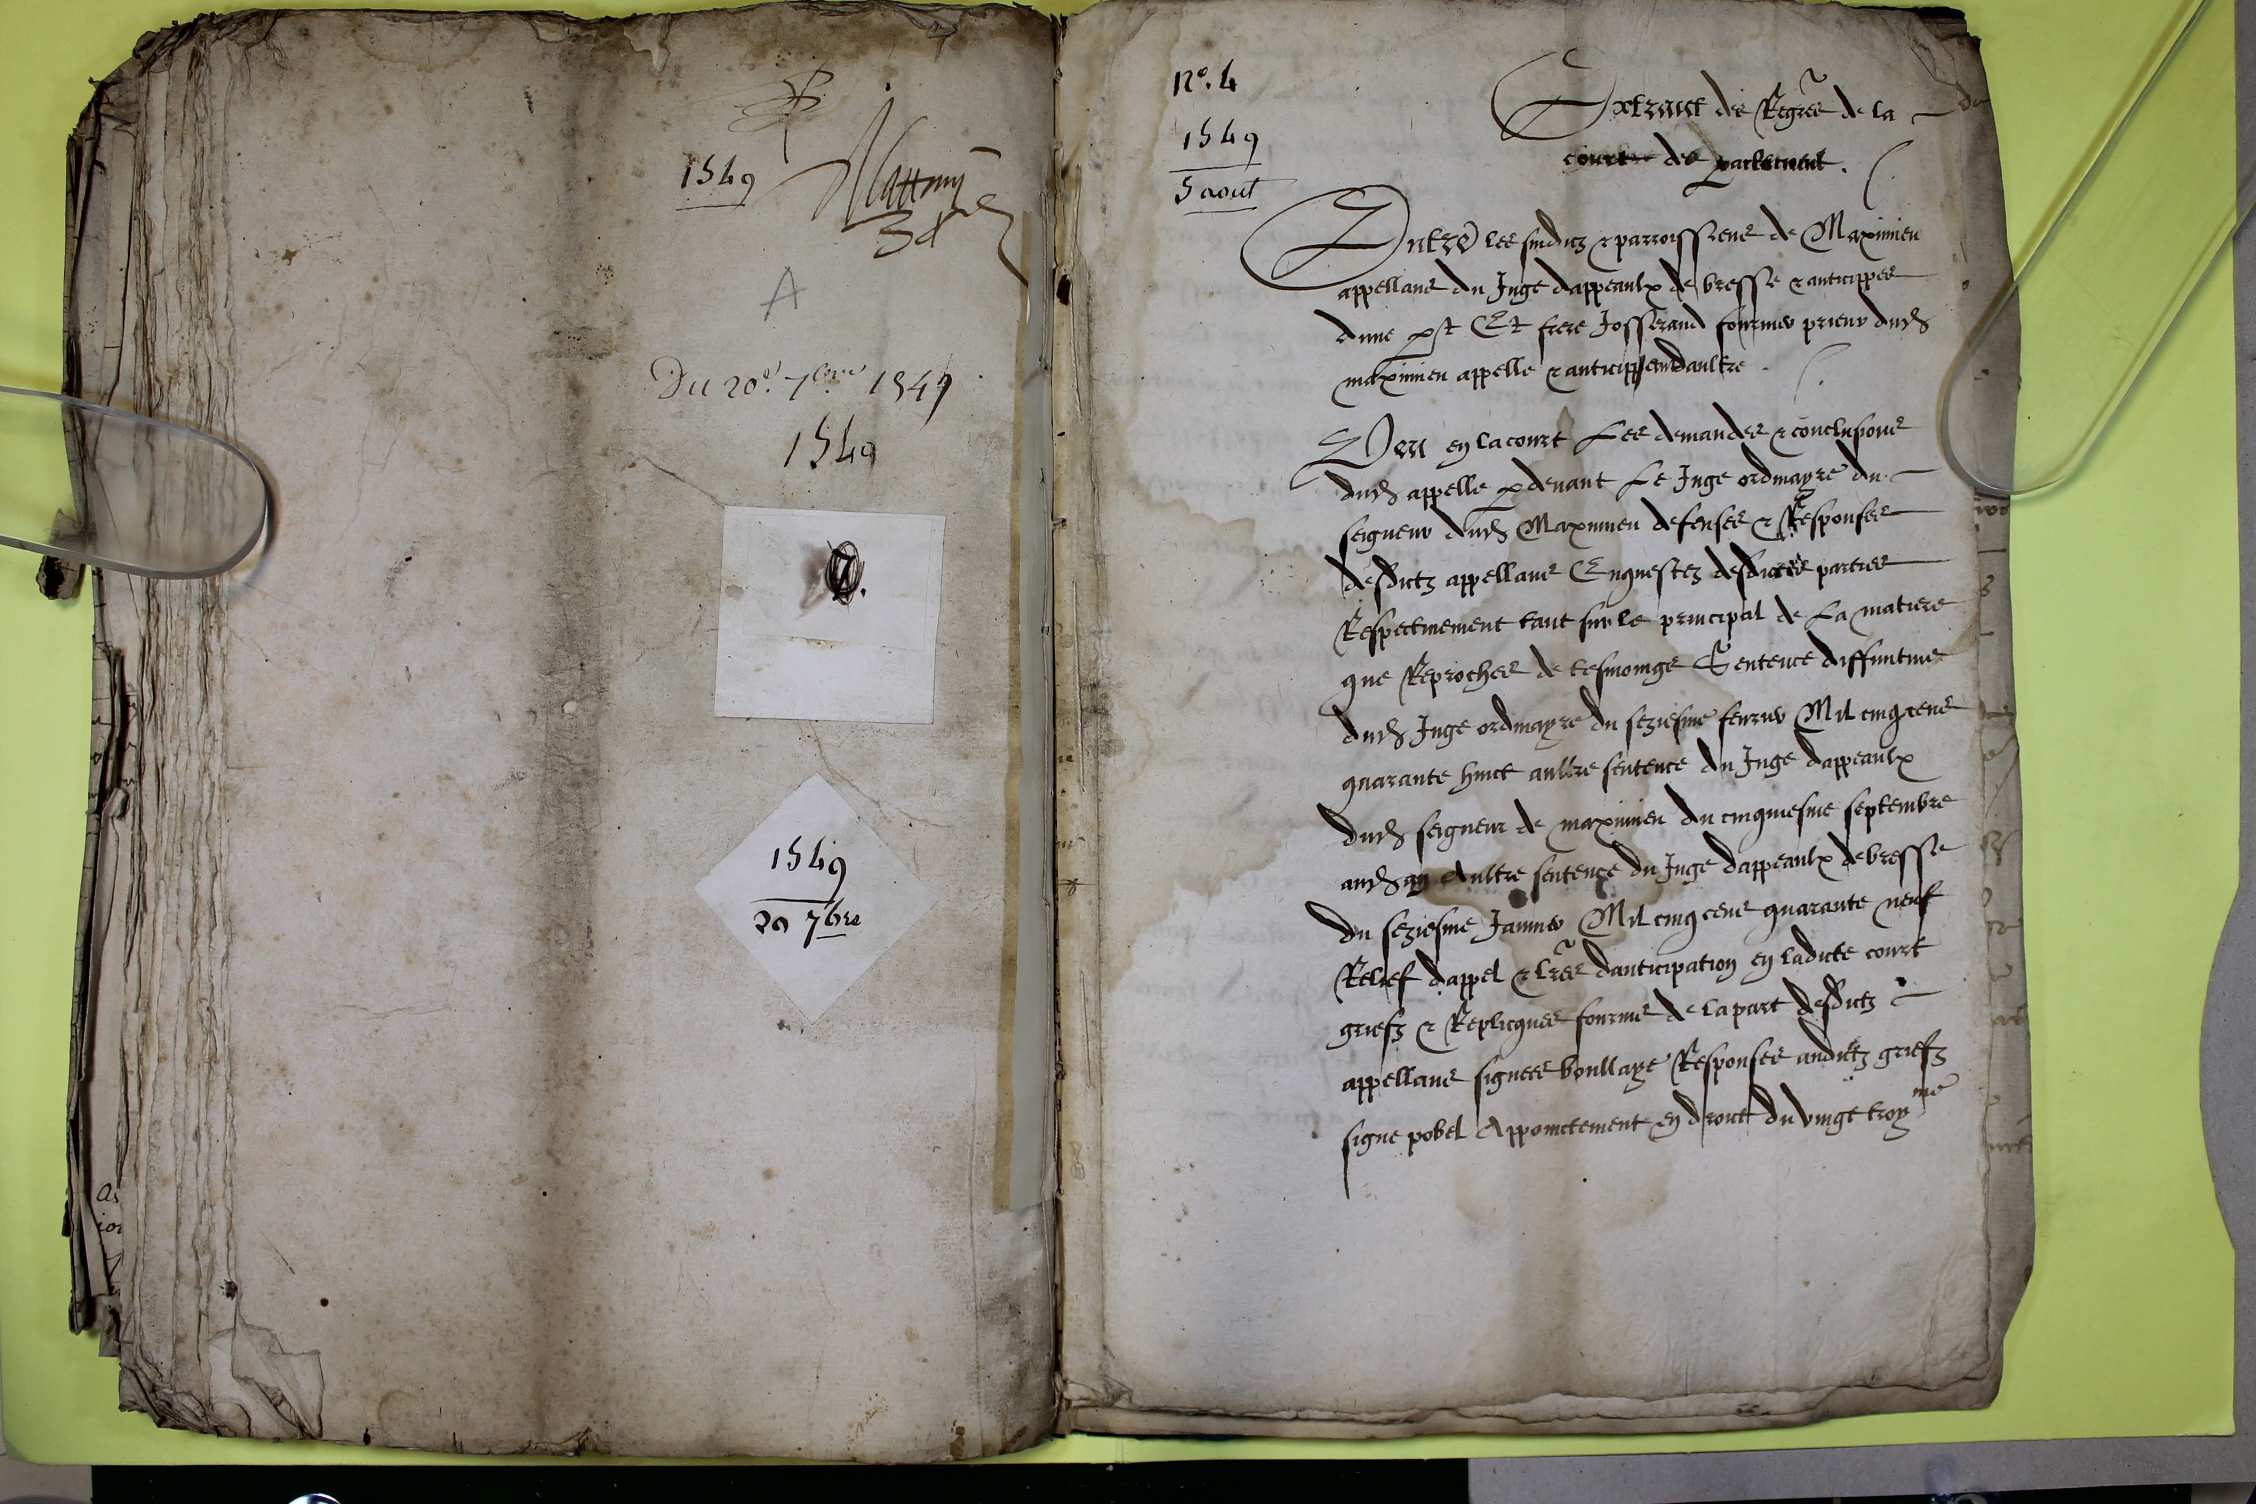 1549
A
Du 20.e 7bre 1549
1549
7.
1549
20 7bre
No. 4
1549
5 aout
Extraict des Regres de la
court de parlement.
Entre les sindicz & parroissiens de Maximieu
appellans du Juge dappeaulx de bresse & anticippes
dune part Et frere Josserand prieur dud
maximieu appelle & anticippant daultre
Veu en la court Les demandes & conclusions
dud appelle pdevant Le Juge ordinayre du
seigneur dud Maximieu defenses & Responses
desdictz appellans Enquestez desdictes parties
Respectivement tant sur le principal de La matiere
que Reproches de tesmoings Sentence diffinitive
dud Juge ordinayre du seziesme fevrier Mil cinq cens
quarante huict aultre sentence du Juge dappeaulx
dud seigneur de maximieu du cinquiesme septembre
aud an Aultre sentence du Juge dappeaulx de bresse
du seziesme Janvier Mil cinq cens quarante neuf
Relief dappel & lres danticipation en ladicte court
griefz & Replicques fournies de la part desdictz
appellans signees boullaye Responses ausdictz griefz
signe pobel Appoinctement en droict du vingt troysme